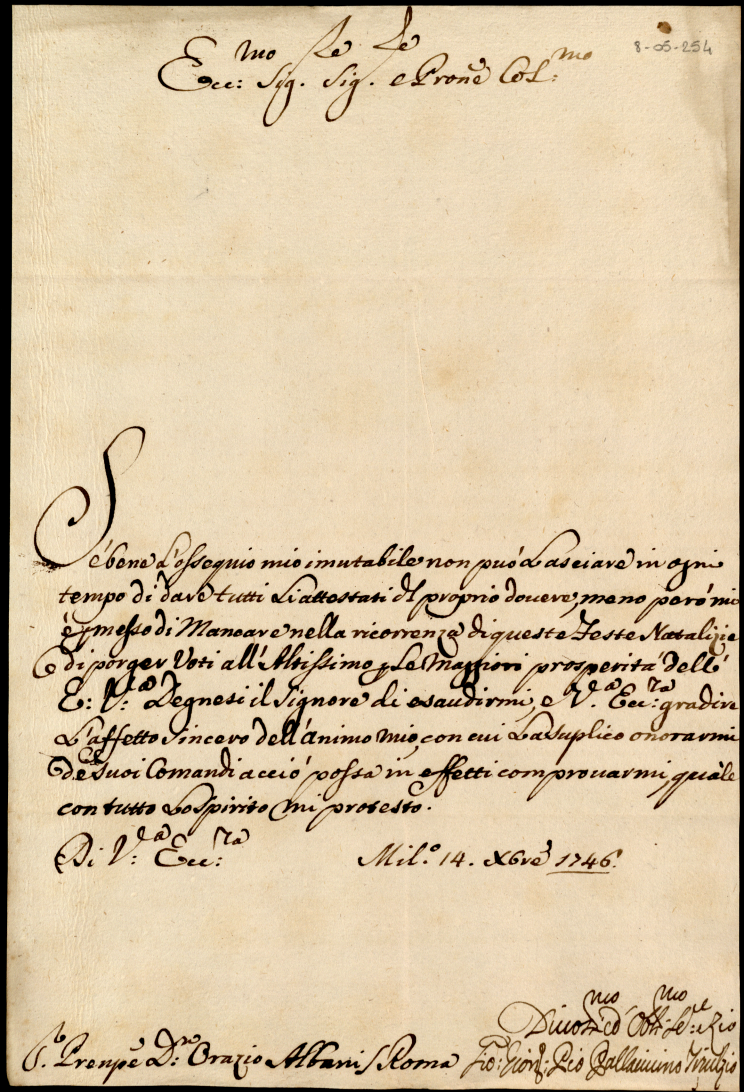 8-05-254
Ecc:mo Sig.re Sig.re e Prone Col:mo
Se bene L'ossequio mio imutabile non può Lasciare in ogni
tempo di dare tutti Li attestati del proprio dovere, meno però mi
è permesso di Mancare nella ricorrenza di queste Feste Natalizie
di porger Voti all'Altissimo per Le Maggiori prosperità dell'
E: V:ra Degnesi il Signore di esaudirmi, e V:ra Ecc:za gradire
L'affetto sincero dell'animo mio, con cui La suplico onorarmi
de suoi Comandi acciò possa in effetti comprovarmi, quale
con tutto Lo spirito mi protesto.
Di V:ra Ecc:za Mil.o 14. Xbre 1746.
Divot:mo ed Obb:mo Se:re e Zio
S.r Prenpe D:n Orazio Albani / Roma Gio: Pio Pallavicino Trivulzio